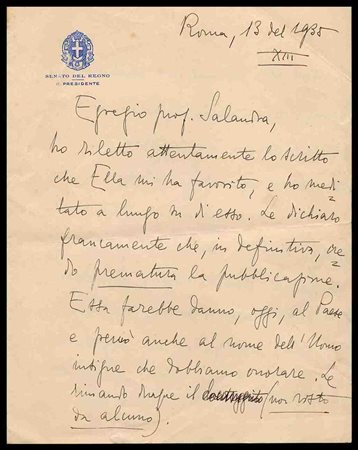 Roma, 13 del 1935
XIII
SENATO DEL REGNO
IL PRESIDENTE
Egregio prof. Salandra,
ho riletto attentamente lo scritto
che Ella mi ha favorito, e ho medi
tato a lungo su di esso. Le dichiaro
francamente che, in definitiva, cre
do prematura la pubblicazione.
Essa farebbe danno, oggi, al Paese
e perciò anche al nome dell'Uomo
insigne che dobbiamo onorare. Le
rimando dunque il (non visto
da alcuno).